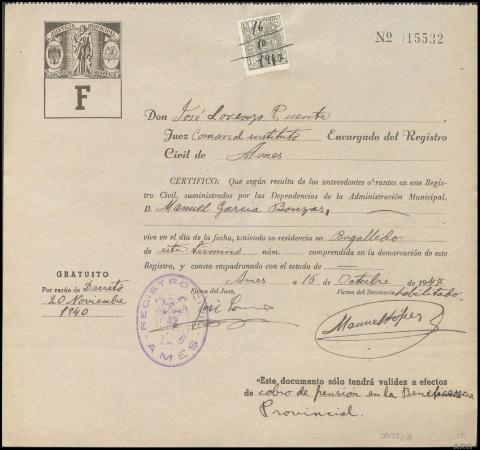 JUSTICIA MUNICIPAL
F
16
10
1947
Nº 15532
Don José Lorenzo Puente
Juez Comarcal instituto Encargado del Registro
Civil de Ames
CERTIFICO: Que según resulta de los antecedentes obrantes en este Regis-
tro Civil, suministrados por las Dependencias de la Administración Municipal,
D. Manuel García Bouzas,
vive en el día de la fecha, teniendo su residencia en Bugallido
de este término núm. comprendida en la demarcación de este
Registro, y consta empadronado con el estado de —
Ames a 16 de Octubre de 1947
Firma del Juez, Firma del Secretario habilitado
GRATUITO
Por razón de Decreto
20 Noviembre
1940
REGISTRO CIVIL
AMES
José Lorenzo
Manuel López
«Este documento sólo tendrá validez a efectos
de cobro de pensión en la Beneficencia
Provincial.